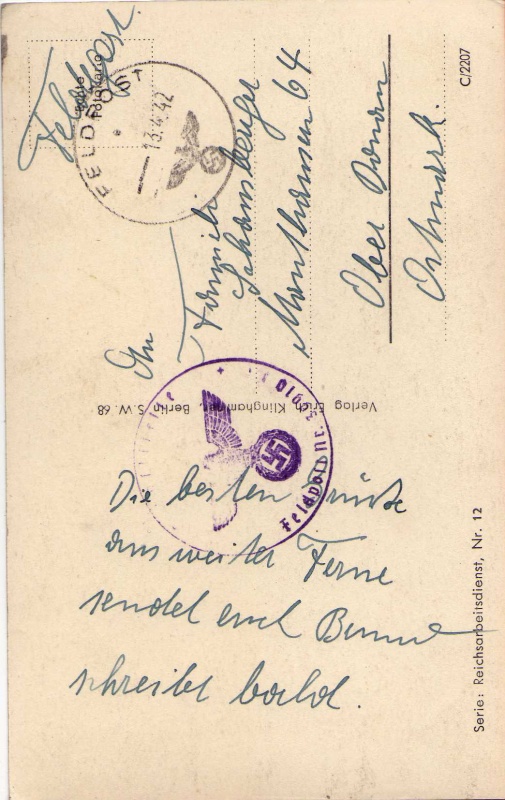 Feldpost.
Bitte
Postkarte
FELDPOST
13.4.42
An
Familie
Johannsberger
Mauthausen 64
Ober Donau
Ostmark.
C/2207
Verlag Erich Klinghammer, Berlin S.W. 68
Feldpost Nr.
Die besten Grüße
aus weiter Ferne
sendet euch
schreibt bald.
Serie: Reichsarbeitsdienst, Nr. 12